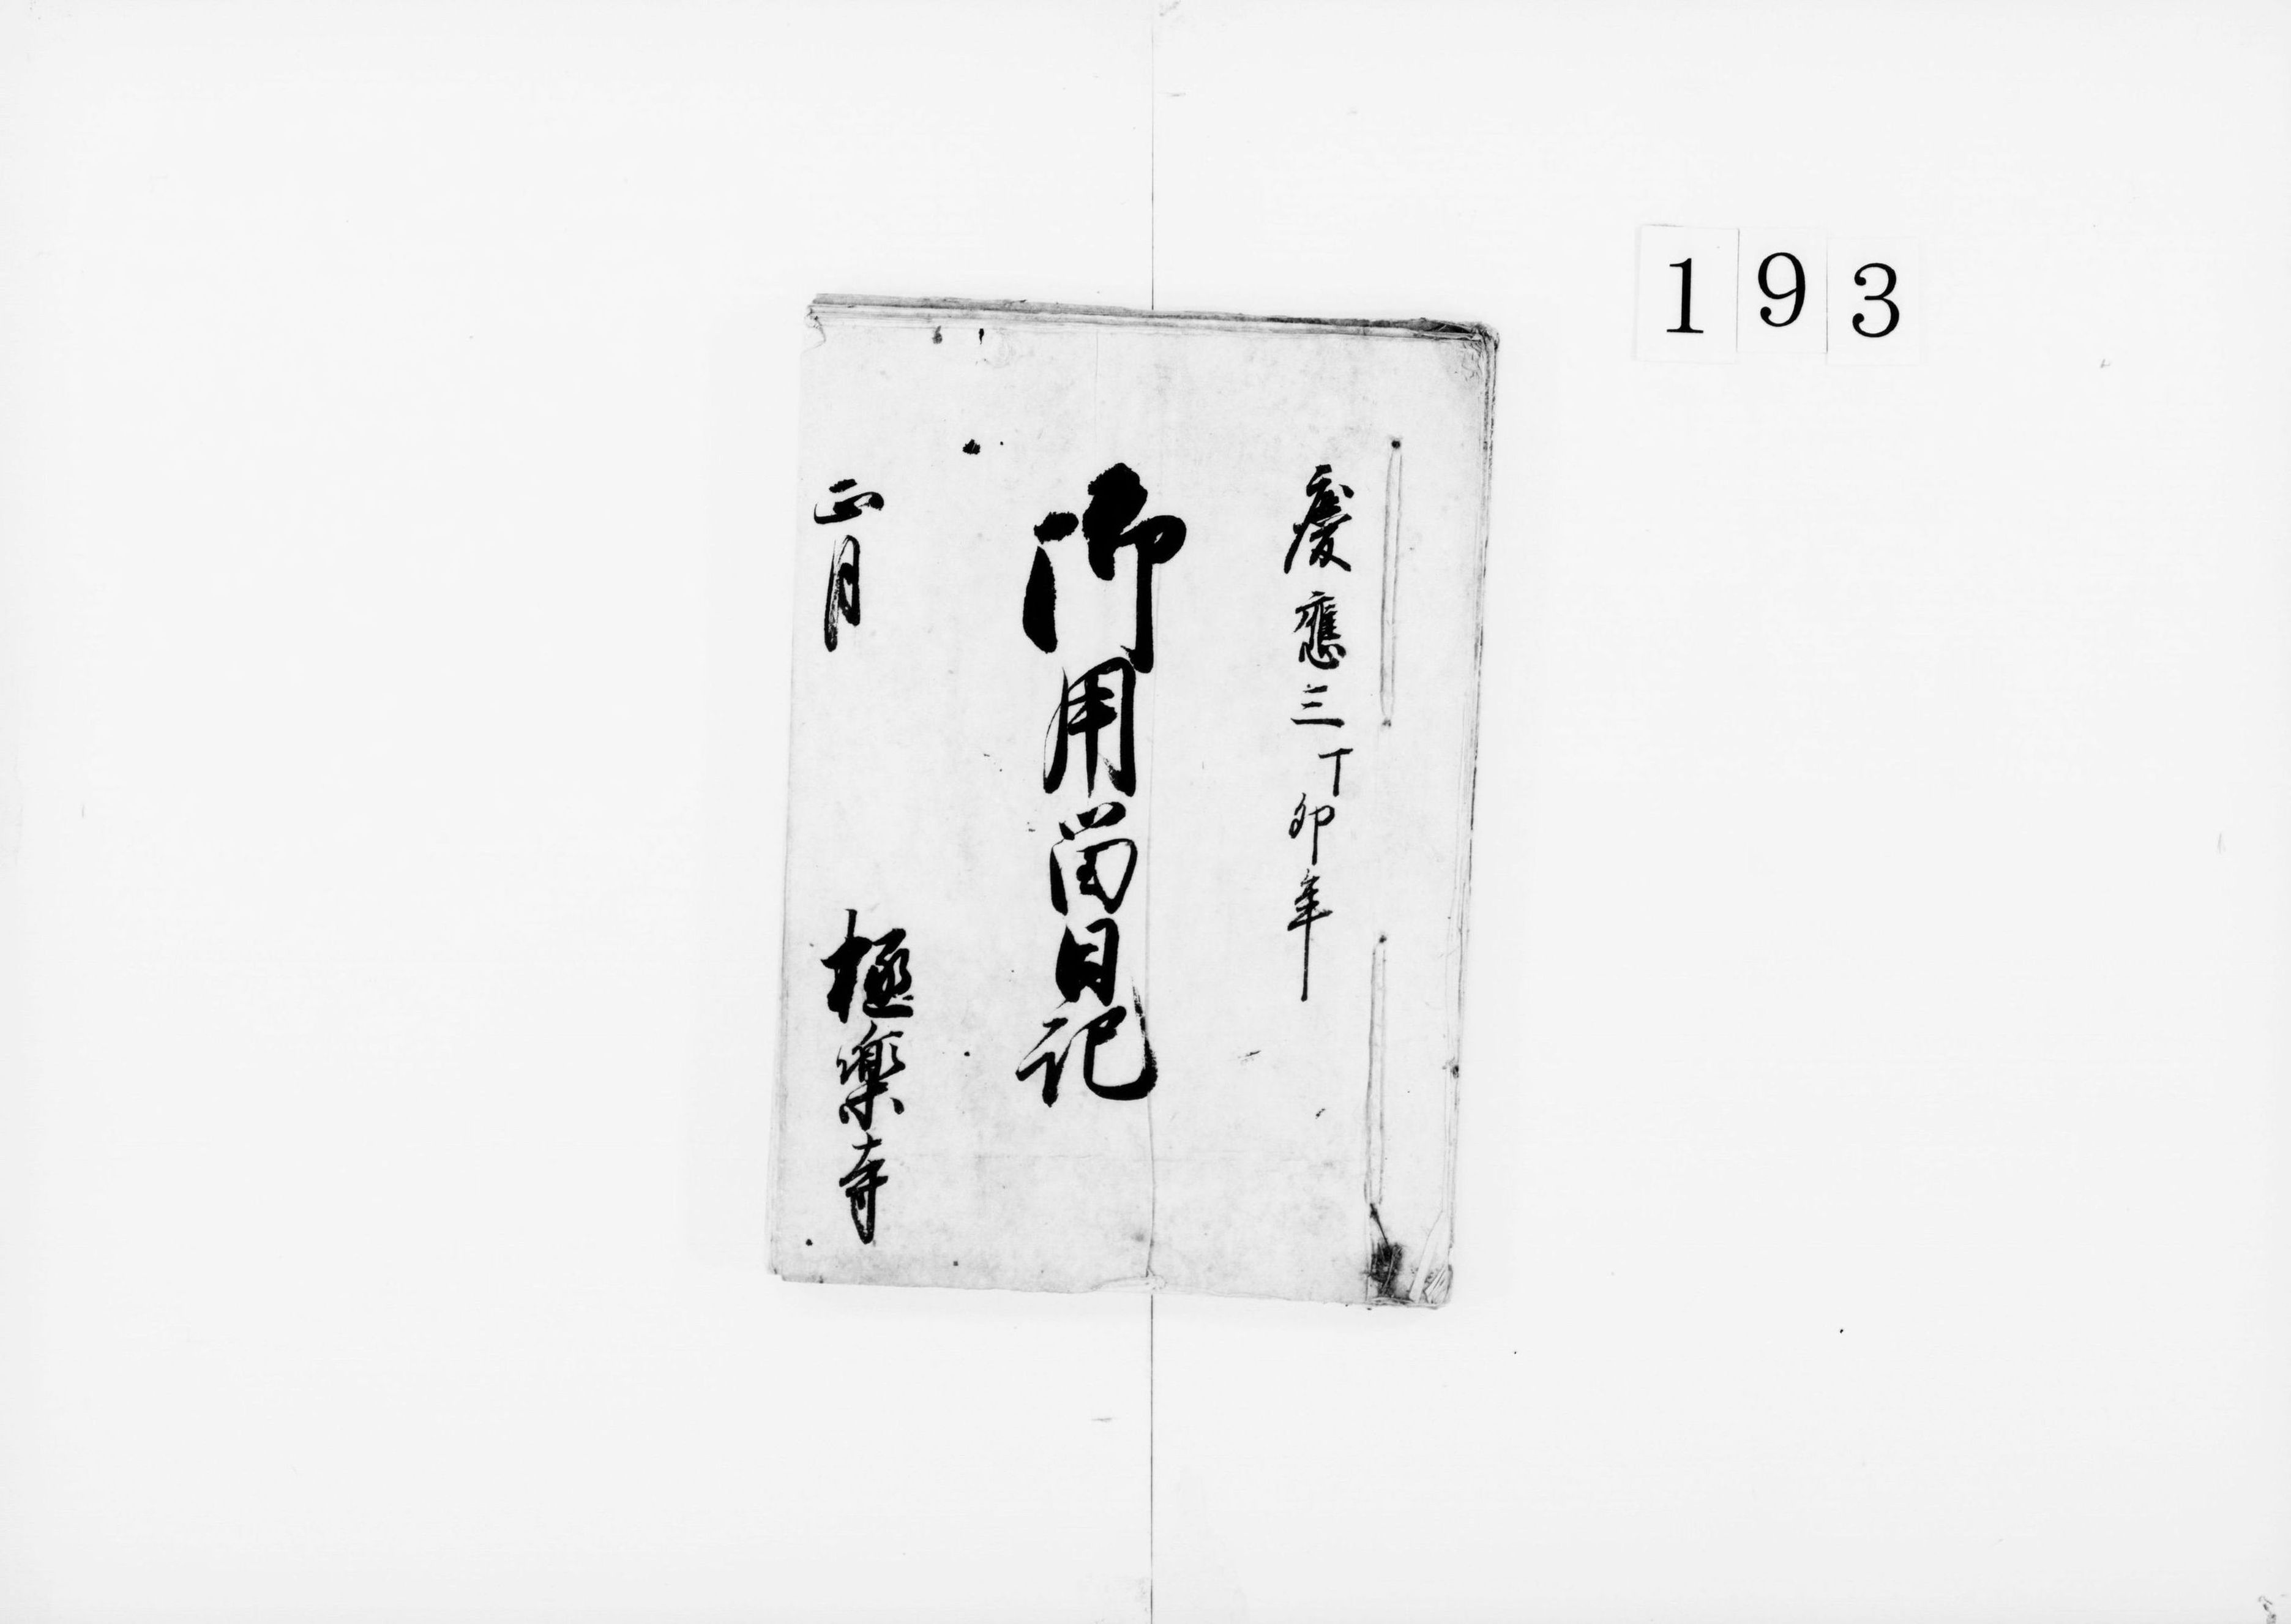 193
慶應三丁卯年
御用留日記
正月
極樂寺